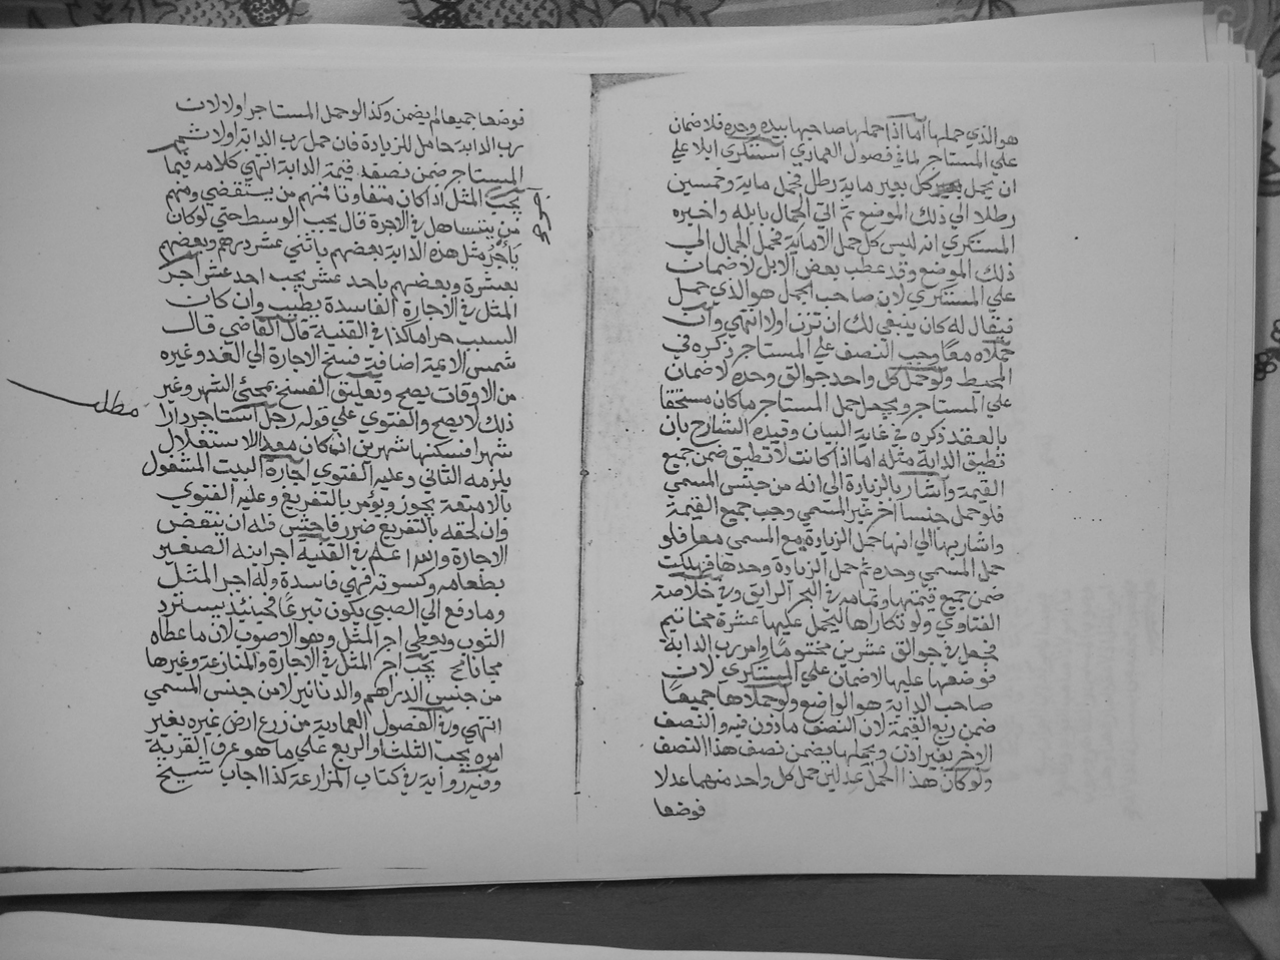 هو الذي حملها أما اذا حملها صاحبها بيده وحده فلا ضمان
علي المستاجر لما في فصول العمادي استكري ابلا علي
ان يحمل كل بعير ماية رطل فحمل ماية وخمسين
رطلا الي ذلك الموضع ثم اتي الجمال بابله واخبره
المستكري انه ليس كل حمل الا ماية فحمل الجمال الي
ذلك الموضع وقد عطب بعض الابل لا ضمان
علي المستكري لان صاحب الجمل هو الذي حمل
فيقال له كان ينبغي لك ان تزن اولا انتهي وان
حملاه معا وجب النصف علي المستاجر ذكره في
المحيط ولو حمل كل واحد جوالق وحده لا ضمان
علي المستاجر ويجعل حمل المستاجر ما كان مستحقا
بالعقد ذكره في غاية البيان وقيده الشارح بان
تطيق الدابة مثله اما اذا كانت لا تطيق ضمن جميع
القيمة واشار بالزيادة الي انه من جنس المسمي
فلو حمل جنسا اخر غير المسمي وجب جميع القيمة
واشار بها الي انها حمل الزيادة مع المسمي معا فلو
حمل المسمي وحده ثم حمل الزيادة وحدها فهلكت
ضمن جميع قيمتها وتمامه في البحر الرايق وفي خلاصة
الفتاوي ولو تكاراها ليحمل عليها عشرة مخاتيم
فجعل في جوالق عشرين مختوما وامر رب الدابة
فوضعها عليها لا ضمان علي المستكري لان
صاحب الدابة هو الواضع ولو حملاها جميعا
ضمن ربع القيمة لان النصف ماذون فيه والنصف
الاخر بغير اذن ويحملها يضمن نصف هذا النصف
ولو كان هذا الحمل عدلين حمل كل واحد منهما عدلا
فوضعا
فوضعا جميعا لم يضمن وكذا لو حمل المستاجر اولا لان
رب الدابة حامل للزيادة فان حمل رب الدابة اولا ثم
المستاجر ضمن نصف قيمة الدابة انتهي كلامه فيما
يجب المثل اذا كان متفاوتا فمنهم من يستقضي ومنهم
من يتساهل في الاجرة قال يجب الوسط حتي لو كان
يأجر مثل هذه الدابة بعضهم باثني عشر درهم وبعضهم
بعشرة وبعضهم باحد عشر يجب احد عشر اجر
المثل في الاجارة الفاسدة يطيب وان كان
السبب حراما كذا في القنية قال القاضي قال
شمس الايمة اضافة فسخ الاجارة الي الغد وغيره
من الاوقات يصح وتعليق الفسخ بمجئ الشهر وغير
ذلك لا يصح والفتوي علي قوله رجل استاجر دارا
شهرا فسكنها شهرين ان كان معد الاستغلال
يلزمه الثاني وعليه الفتوي اجارة البيت المشغول
بالامتعة يجوز ويؤمر بالتفريغ وعليه الفتوي
وان لحقه بالتفريغ ضرر فاحش فله ان ينقض
الاجارة والله اعلم في القنية اجر ابنه الصغير
بطعامه وكسوته فهي فاسدة وله اجر المثل
وما دفع الي الصبي يكون تبرعا فحينئذ يسترد
الثوب ويعطي اجر المثل وهو الاصوب لان ما عطاه
مجانا نح يجب اجر المثل في الاجارة والمنازعة وغيرها
من جنس الدراهم والدنانير لا من جنس المسمي
انتهي وفي الفصول العمادية من زرع ارض غيره بغير
امره يجب الثلث او الربع علي ما هو عرف القرية
وفيه رواية في كتاب المزارعة كذا اجاب شيخ
مطلب